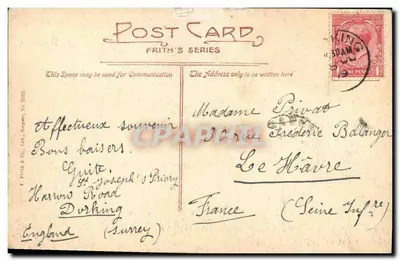 POST CARD
FRITH'S SERIES
This Space may be used for Communication
The Address only to be written here
Affectueux souvenir
Bons baisers.
Guite.
St Joseph's Priory
Harrow Road
Dorking
England (Surrey)
Madame Privat
Frédéric Bellanger
Le Hâvre
France (Seine Infre)
DORKING